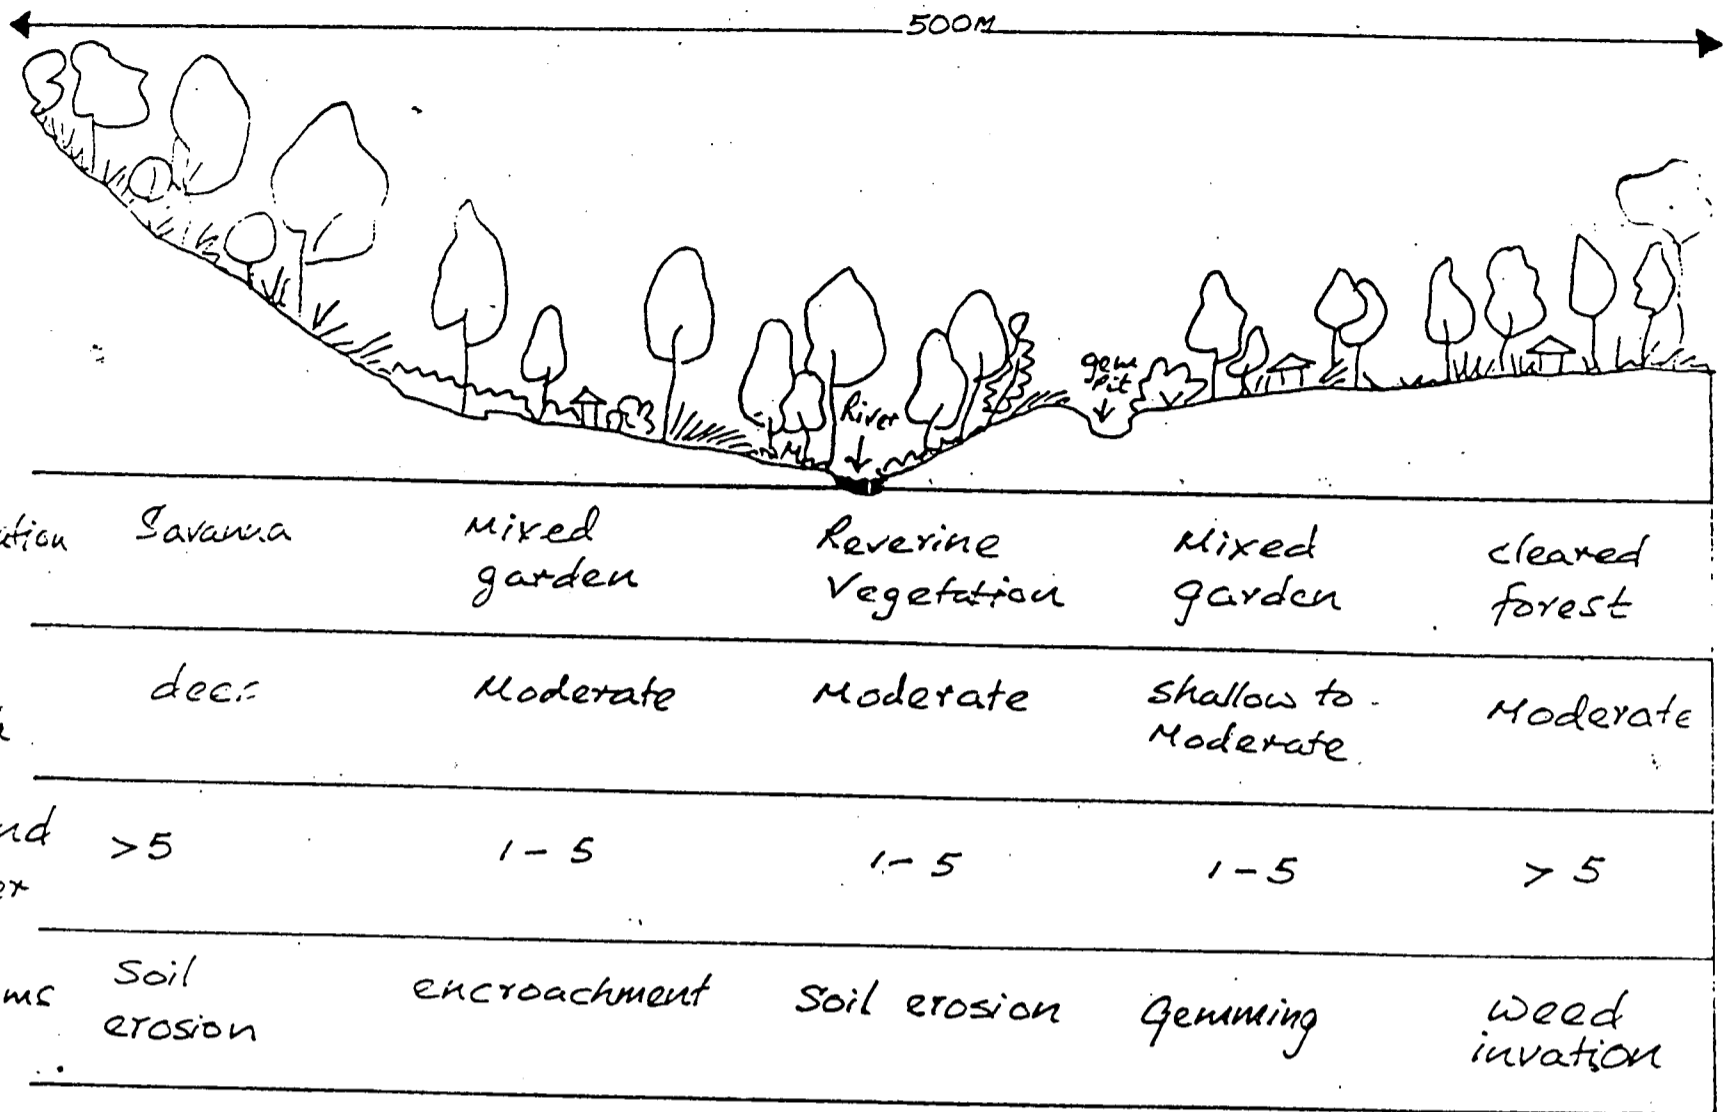 500M
gem
pit
River
Savanna
Mixed
garden
Reverine
Vegetation
Mixed
garden
cleared
forest
Moderate
Moderate
Shallow to
Moderate
Moderate
>5
1-5
1-5
1-5
>5
Soil
erosion
encroachment
Soil erosion
Gemming
weed
invation